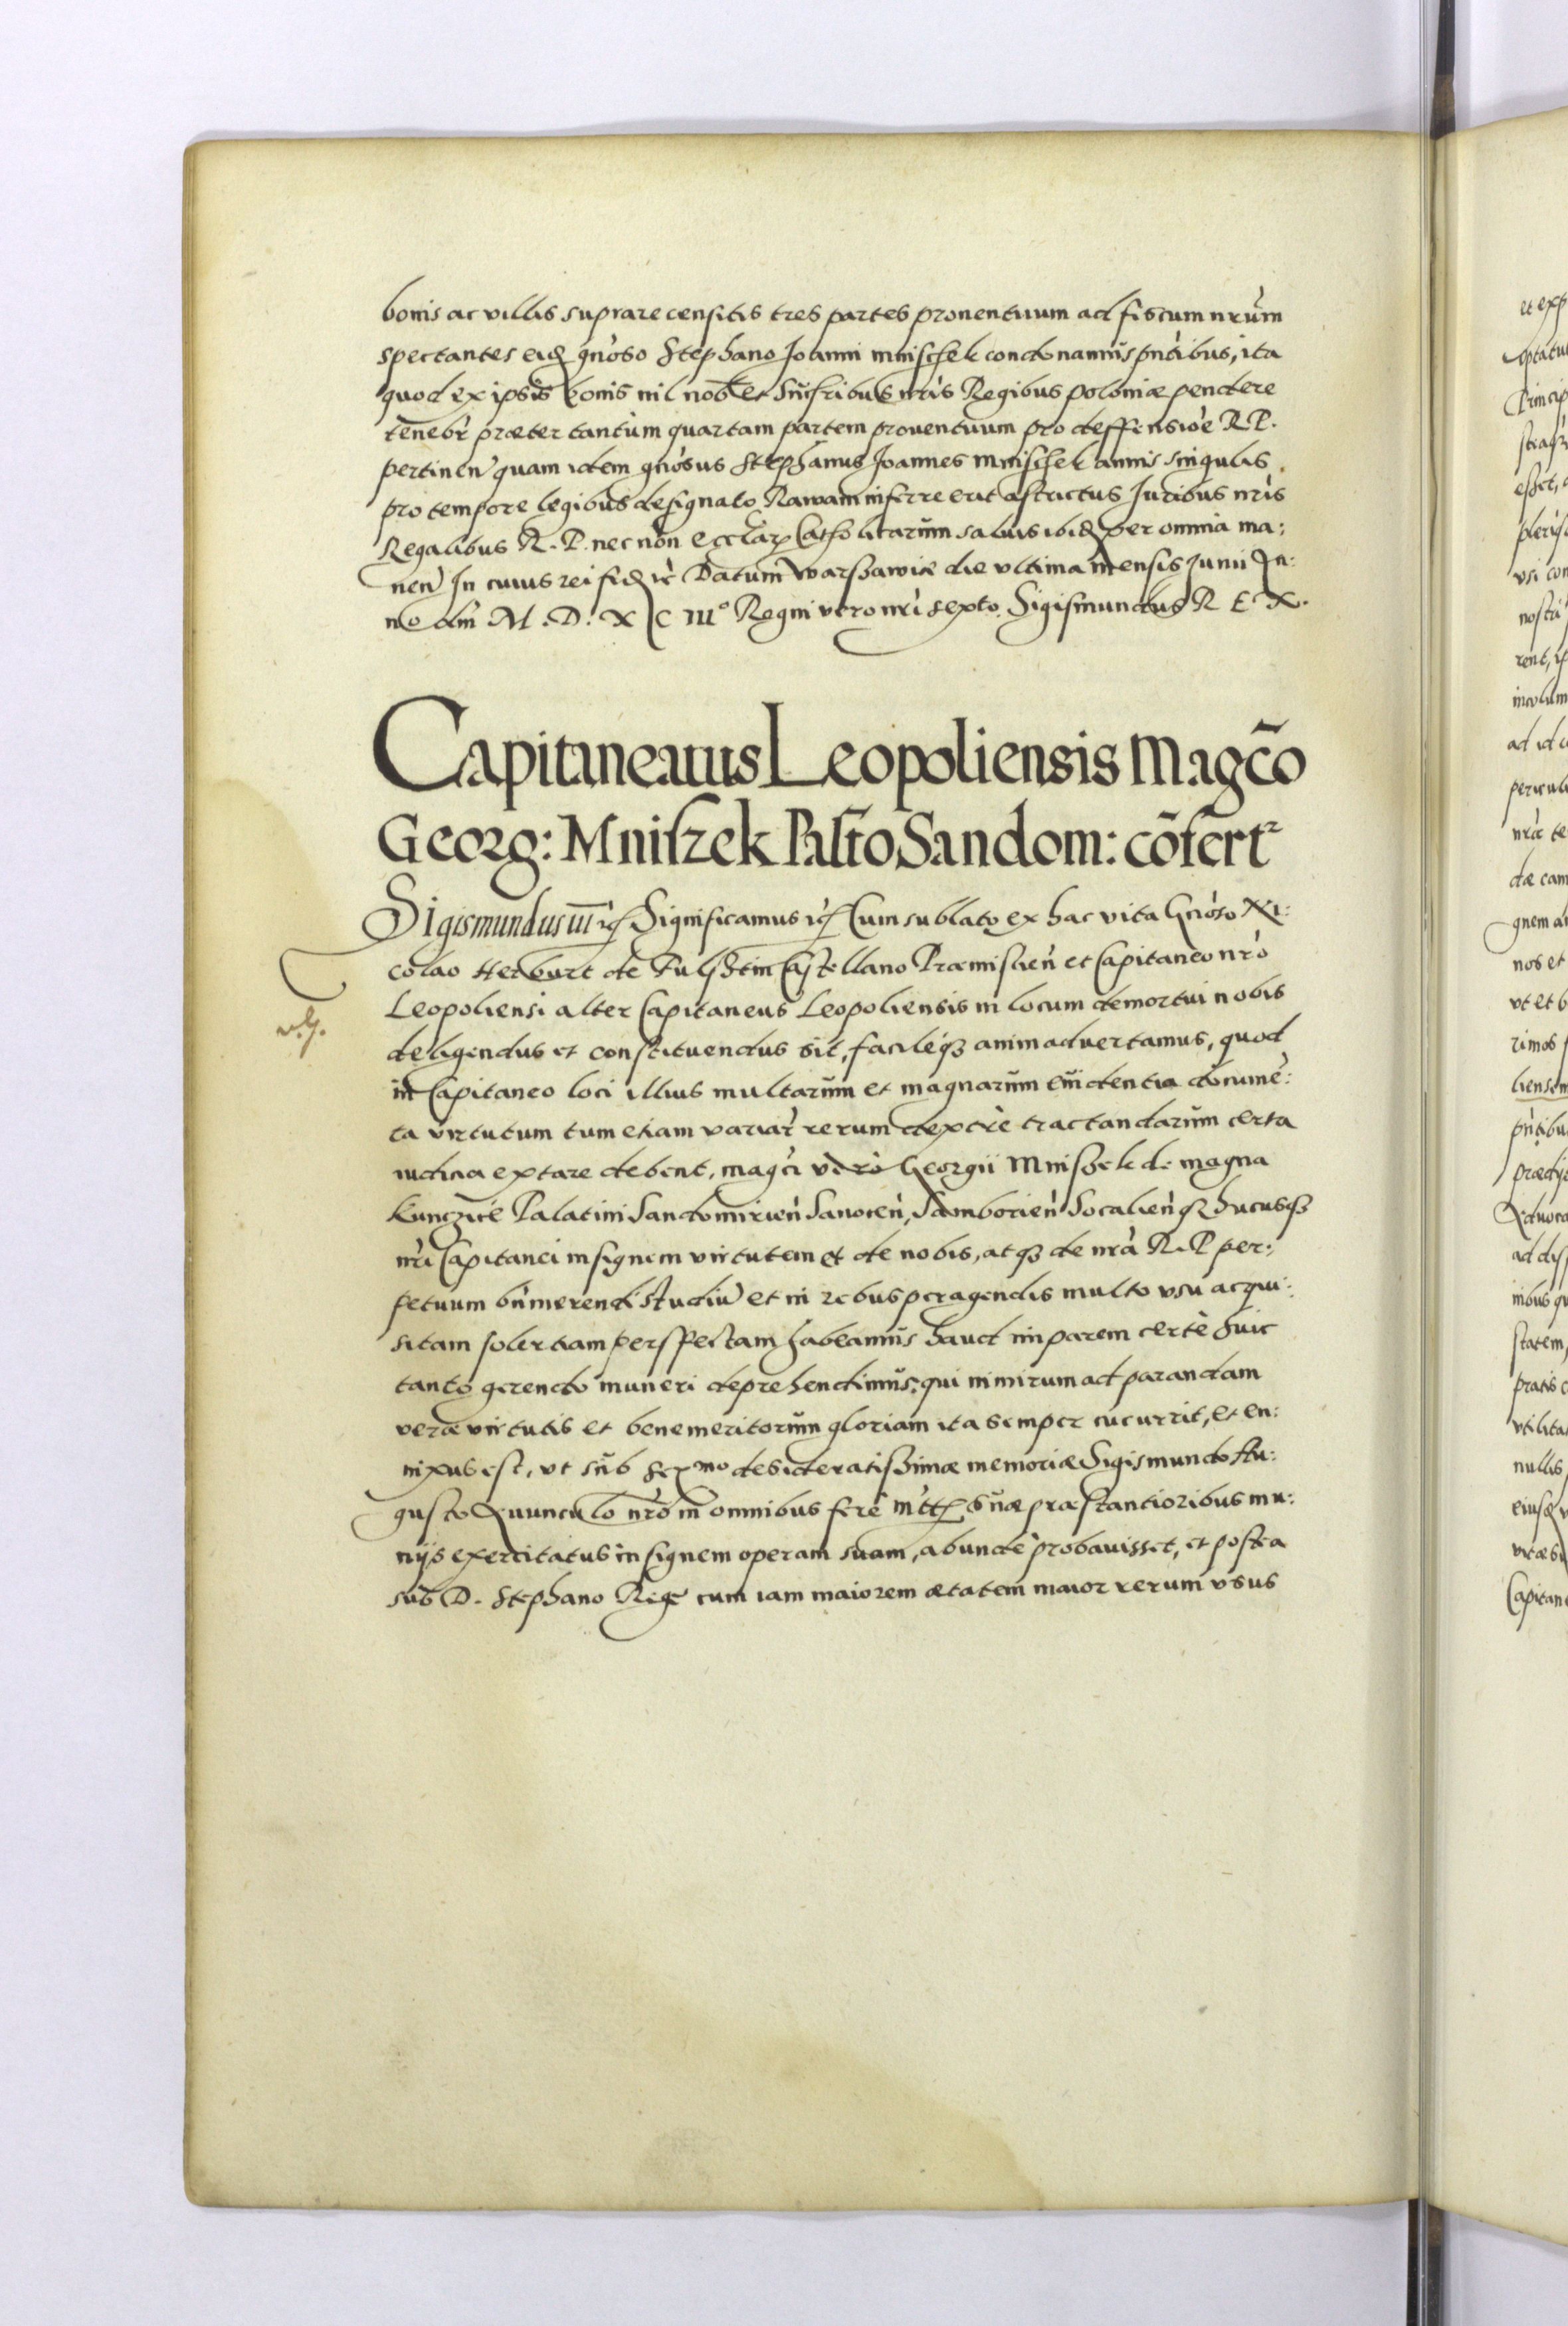 bonis ac villis suprarecensitis tres partes prouentuum ad fiscum nrūm
spectantes eid gnoso Stephano Joanni Mnischek condonamus pntibus, ita
quod ex ipsis bonis nil nob et Succribus nris Regibus poloniæ pendere
tenebr præter tantùm quartam partem prouentuum pro deffensioe R. P.
pertinen quam idem gnosus Stephanus Joannes Mnischek annis singulis
pro tempore legibus designato Rawam inferre erit astrictus Juribus nris
Regalibus R. P. nec non ecclar Catholicarum saluis ibid per omnia ma:
nen In cuius rei fid ic Datum Warssawiæ die vltima mensis Junii An:
no dm M. D. X C III° Regni vero nri sexto. Sigismundus R E X.
Capitaneatus Leopoliensis Magco
Georg: Mniszek Palto Sandom: cōfert
Sigismundus III ic Significamus ic Cum sublato ex hac vita Gnoso Ni:
colao Herburt de Fulsstin Castellano Præmislien et Capitaneo nro
Leopoliensi alter Capitaneus Leopoliensis in locum demortui nobis
v. G.
deligendus et constituendus sit, facileq3 animaduertamus, quod
in Capitaneo loci illius multarum et magnarum euidentia documē:
ta virtutum tum etiam variar rerum dextrè tractandarum certa
iudicia extare debent, magci verò Georgii Mnissek de magna
Kunczice Palatini Sandomirien Sanocen, Samborien Socalienq3 hucusq3
nri Capitanei insignem virtutem et de nobis, atq3 de nrà R. P per:
petuum bnmerendi studiū et in rebus peragendis multo vsu acqui:
sitam solertiam perspectam habeamus haud imparem certè huic
tanto gerendo muneri deprehendimus, qui nimirum ad parandam
veræ virtutis et benemeritorum gloriam ita semper cucurrit, et en:
nixus est, vt sub Serᵐᵒ desideratissimæ memoriæ Sigismundo Au:
gusto Auunculo nro in omnibus ferè suæ præstantioribus mu:
nijs exercitatus insignem operam suam, abundè probauisset, et postea
sub D. Stephano Rege cum iam maiorem ætatem maior rerum vsus